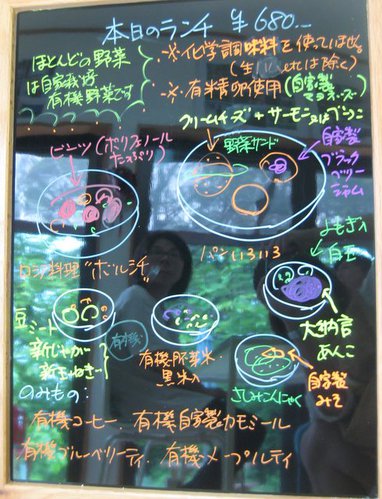 本日のランチ ¥680.-
ほとんどの野菜
は自家栽培
有機野菜です
※化学調味料を使っていません
(生ハムetcは除く)
※有精卵使用(自家製
マヨネーズ)
クリームチーズ+サーモン
ビーンツ(ポリフェノール
たっぷり)
野菜サンド
自家製
ブラック
ベリー
ジャム
パンいろいろ
ロシア料理"ボルシチ"
よもぎ
白玉
豆シート
新じゃが
新玉ねぎ
有機
有機胚芽米
黒米入
大納言
あんこ
さしみこんにゃく
自家製
みそ
のみもの:
有機コーヒー、有機自家製カモミール
有機ブルーベリーティ、有機メープルティ